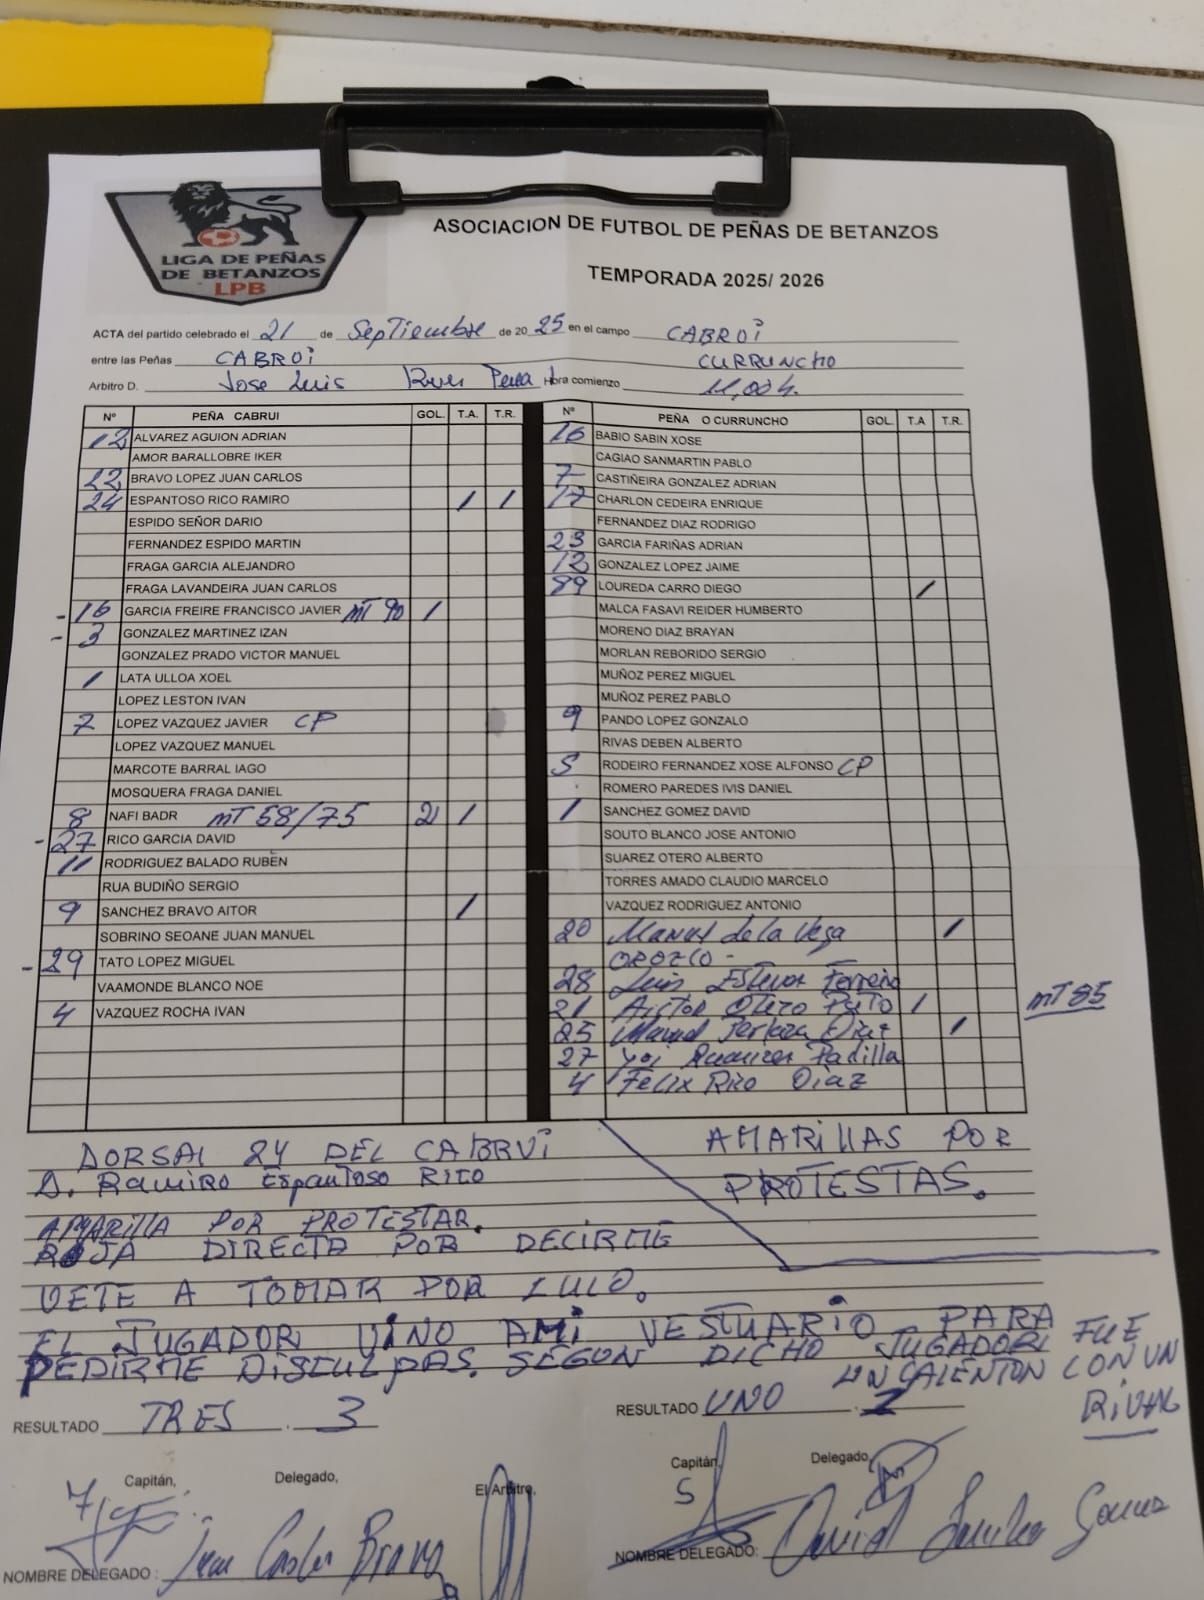 LIGA DE PEÑAS
DE BETANZOS
LPB
ASOCIACION DE FUTBOL DE PEÑAS DE BETANZOS
TEMPORADA 2025/ 2026
ACTA del partido celebrado el 21 de Septiembre de 20 25 en el campo CABROI
entre las Peñas CABROI CURRUNCHO
Arbitro D. Jose Luis Hora comienzo 11,00h.
Nº PEÑA CABRUI GOL. T.A. T.R.
12 ALVAREZ AGUION ADRIAN
AMOR BARALLOBRE IKER
22 BRAVO LOPEZ JUAN CARLOS
24 ESPANTOSO RICO RAMIRO / /
ESPIDO SEÑOR DARIO
FERNANDEZ ESPIDO MARTIN
FRAGA GARCIA ALEJANDRO
FRAGA LAVANDEIRA JUAN CARLOS
- 16 GARCIA FREIRE FRANCISCO JAVIER MT 90 /
- 3 GONZALEZ MARTINEZ IZAN
GONZALEZ PRADO VICTOR MANUEL
1 LATA ULLOA XOEL
LOPEZ LESTON IVAN
7 LOPEZ VAZQUEZ JAVIER CP
LOPEZ VAZQUEZ MANUEL
MARCOTE BARRAL IAGO
MOSQUERA FRAGA DANIEL
8 NAFI BADR MT 58/75 2 /
- 27 RICO GARCIA DAVID
11 RODRIGUEZ BALADO RUBÉN
RUA BUDIÑO SERGIO
9 SANCHEZ BRAVO AITOR /
SOBRINO SEOANE JUAN MANUEL
- 29 TATO LOPEZ MIGUEL
VAAMONDE BLANCO NOE
4 VAZQUEZ ROCHA IVAN
Nº PEÑA O CURRUNCHO GOL. T.A T.R.
16 BABIO SABIN XOSE
CAGIAO SANMARTIN PABLO
7 CASTIÑEIRA GONZALEZ ADRIAN
17 CHARLON CEDEIRA ENRIQUE
FERNANDEZ DIAZ RODRIGO
23 GARCIA FARIÑAS ADRIAN
12 GONZALEZ LOPEZ JAIME
99 LOUREDA CARRO DIEGO /
MALCA FASAVI REIDER HUMBERTO
MORENO DIAZ BRAYAN
MORLAN REBORIDO SERGIO
MUÑOZ PEREZ MIGUEL
MUÑOZ PEREZ PABLO
9 PANDO LOPEZ GONZALO
RIVAS DEBEN ALBERTO
5 RODEIRO FERNANDEZ XOSE ALFONSO CP
ROMERO PAREDES IVIS DANIEL
1 SANCHEZ GOMEZ DAVID
SOUTO BLANCO JOSE ANTONIO
SUAREZ OTERO ALBERTO
TORRES AMADO CLAUDIO MARCELO
VAZQUEZ RODRIGUEZ ANTONIO
20 Manuel de la Vega /
OROZCO -
28 Luis Ferreño
21 Otero / MT 85
25 Manuel Diaz /
27 Yoi Ramirez Padilla
4 Felix Rico Diaz
DORSAL 24 DEL CABRUI
D. Ramiro Espantoso Rico
AMARILLA POR PROTESTAR.
ROJA DIRECTA POR DECIRME
VETE A TOMAR POR CULO.
EL JUGADOR VINO AMI VESTUARIO PARA
PEDIRME DISCULPAS. SEGÚN DICHO JUGADOR FUE
UN CALENTON CON UN
RIVAL
AMARILLAS POR
PROTESTAS.
RESULTADO TRES . 3
RESULTADO UNO . 1
Capitán, Delegado, El Arbitro,
Capitán, Delegado,
7
5
NOMBRE DELEGADO : Juan Carlos Bravo
NOMBRE DELEGADO: David Sanchez Gomez